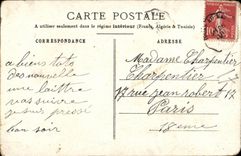 CARTE POSTALE
A utiliser seulement dans le régime intérieur (France, Algérie & Tunisie)
CORRESPONDANCE
ADRESSE
a biens toto
des nouvelle
une laittre
vas suivre
je sui pressé
bon soir
Madame Charpentier
Charpentier
17 rue jean robert 17
Paris
18eme
10